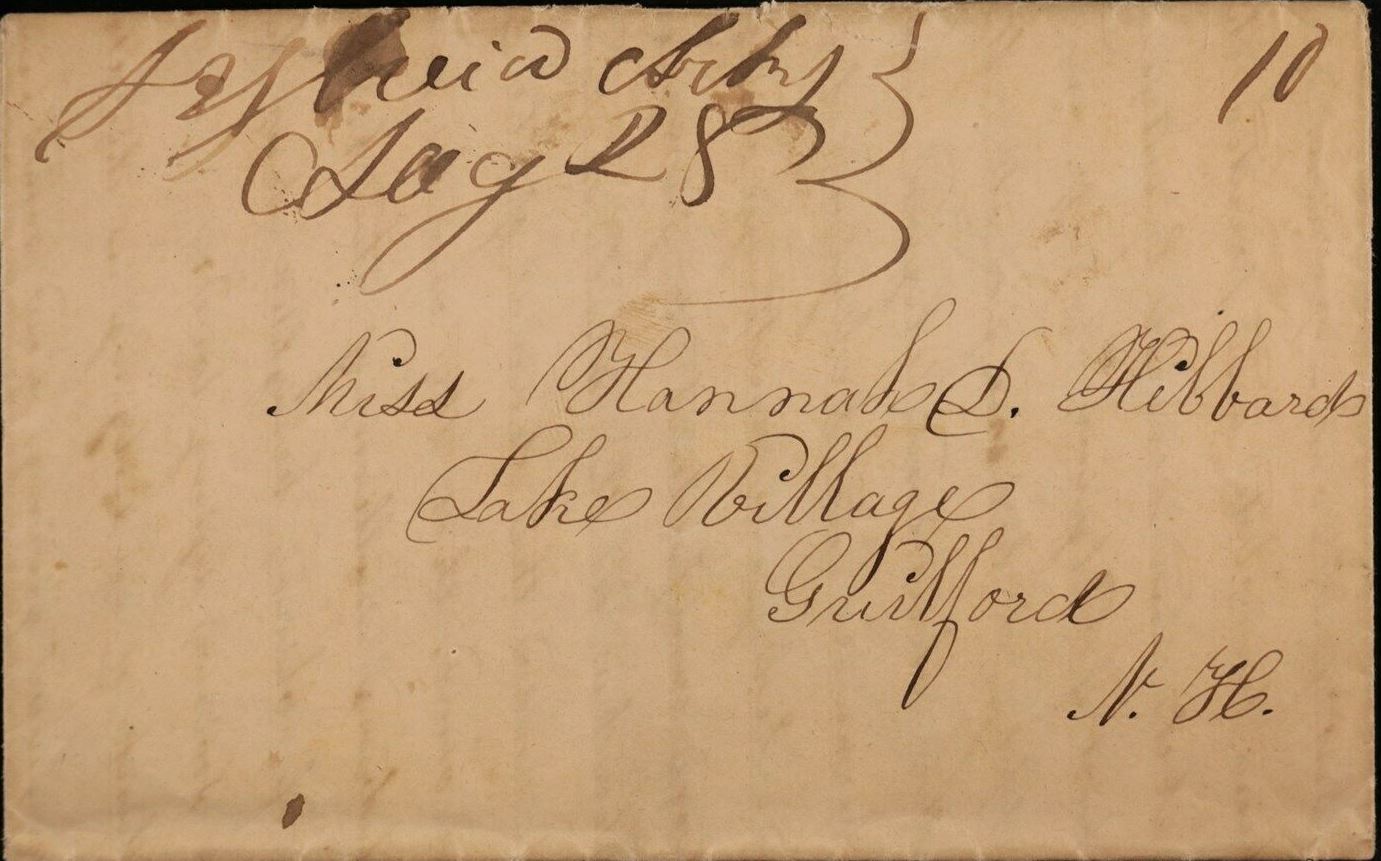 10
Aug 28
Miss Hannah D. Hibbard
Lake Village
Guilford
N. H.